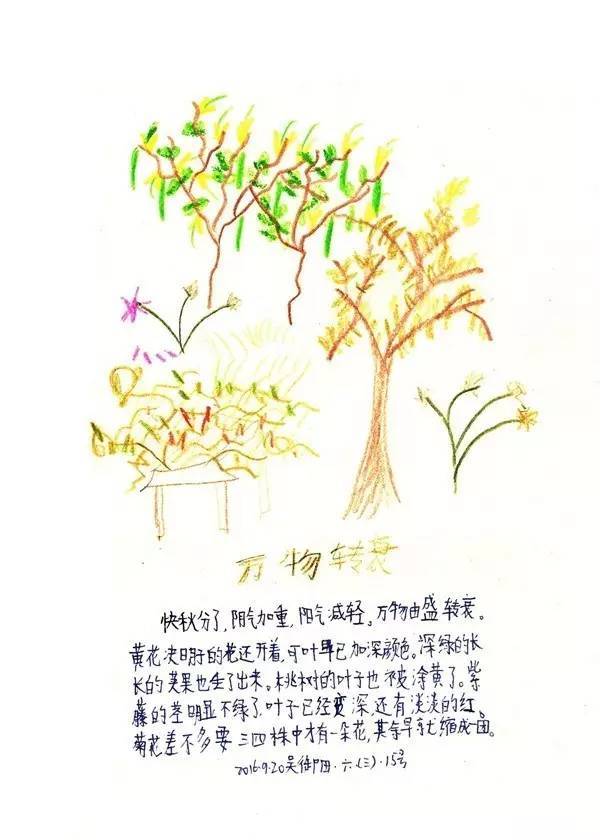 万物转衰
快秋分了,阴气加重,阳气减轻。万物由盛转衰。
黄花决明子的花还开着,可叶早已加深颜色。深绿的长
长的荚果也生了出来。桃树的叶子也被涂黄了。紫
藤的茎明显不绿了,叶子已经变深,还有淡淡的红。
菊花差不多要三四株中才有一朵花,其余早就缩成一团。
2016.9.20吴御田·六.(三)·15号